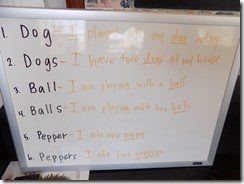 1. Dog - I played with my dog today.
2. Dogs - I have two dogs at my house
3. Ball - I am playing with a ball
4. Balls - I am playing with two balls
5. Pepper - I ate one pepper
6. Peppers I ate two peppers